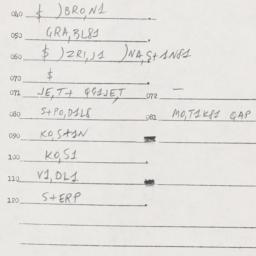 040 $ )BRO,N1
050 GRA,BL81
060 $ )ZRI,J1 )NA,S+1N81
070 $
071 JE,T+ GG1JET 072 —
080 S+PO,D1L8 081 MO,T1K81 GAP
090 KO,S+1N
100 KO,S1
110 V1,DL1
120 S+ERP